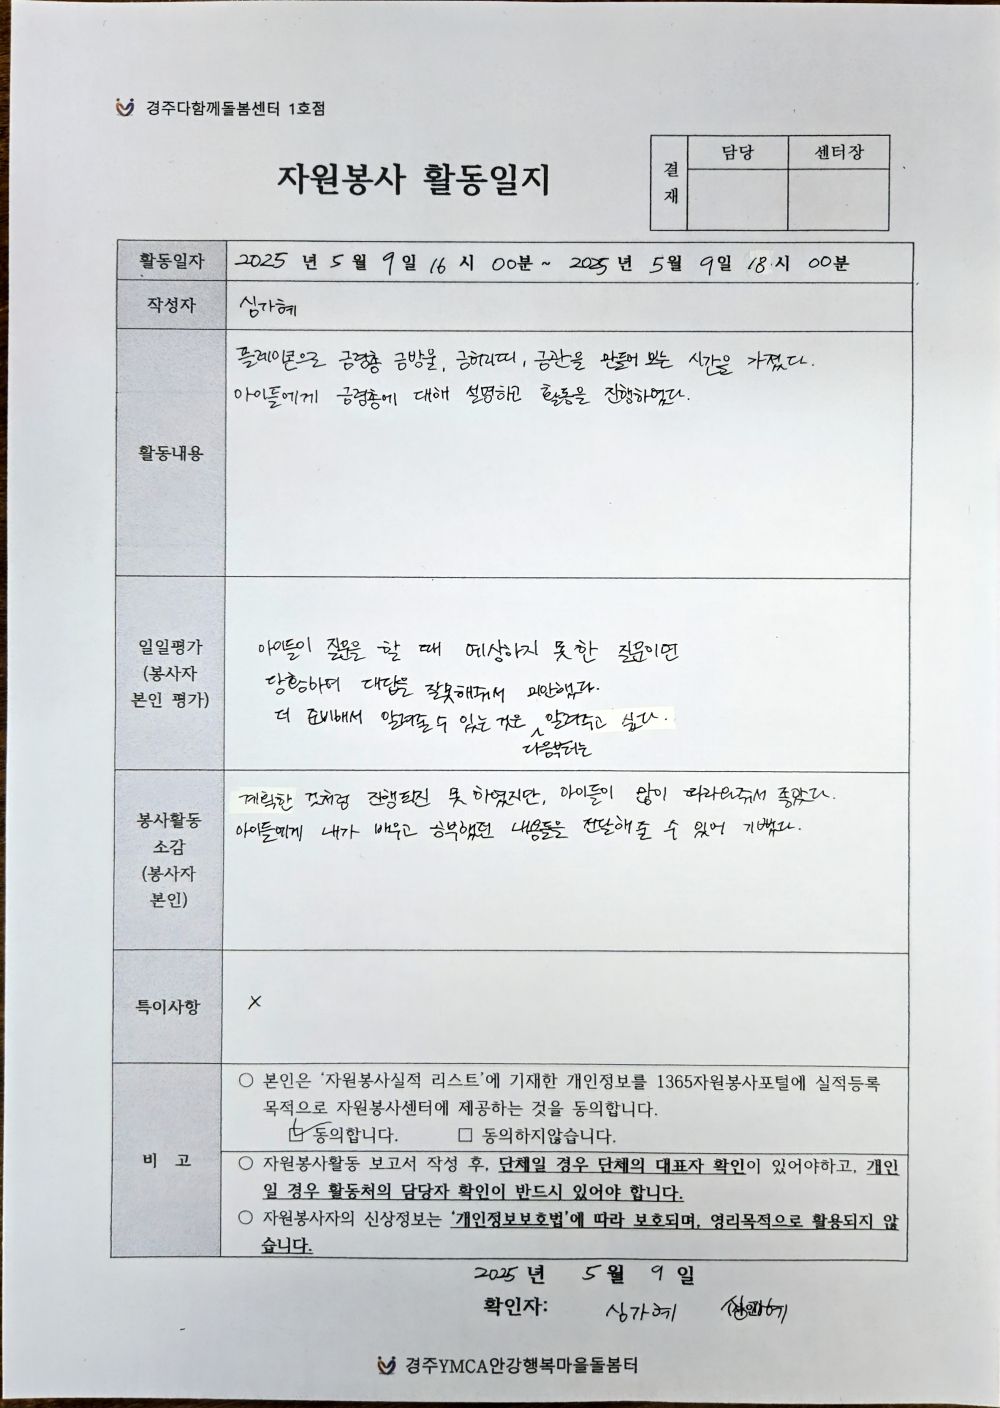 경주다함께돌봄센터 1호점
자원봉사 활동일지
결재 담당 센터장
활동일자 2025 년 5 월 9 일 16 시 00분 ~ 2025 년 5월 9일 18시 00분
작성자 심가혜
활동내용
플레이콘으로 금령총 금방울, 금허리띠, 금관을 만들어 보는 시간을 가졌다.
아이들에게 금령총에 대해 설명하고 활동을 진행하였다.
일일평가
(봉사자
본인 평가)
아이들이 질문을 할 때 예상하지 못한 질문이면
당황하여 대답을 잘못해줘서 미안했다.
더 준비해서 알려줄 수 있는 것은 다음부터는 알려주고 싶다.
봉사활동
소감
(봉사자
본인)
계획한 것처럼 진행되진 못 하였지만, 아이들이 많이 따라와줘서 좋았다.
아이들에게 내가 배우고 공부했던 내용들을 전달해 줄 수 있어 기뻤다.
특이사항 X
비 고
○ 본인은 '자원봉사실적 리스트'에 기재한 개인정보를 1365자원봉사포털에 실적등록
목적으로 자원봉사센터에 제공하는 것을 동의합니다.
☑ 동의합니다. □ 동의하지않습니다.
○ 자원봉사활동 보고서 작성 후, 단체일 경우 단체의 대표자 확인이 있어야하고, 개인
일 경우 활동처의 담당자 확인이 반드시 있어야 합니다.
○ 자원봉사자의 신상정보는 '개인정보보호법'에 따라 보호되며, 영리목적으로 활용되지 않
습니다.
2025 년 5 월 9 일
확인자: 심가혜
경주YMCA안강행복마을돌봄터